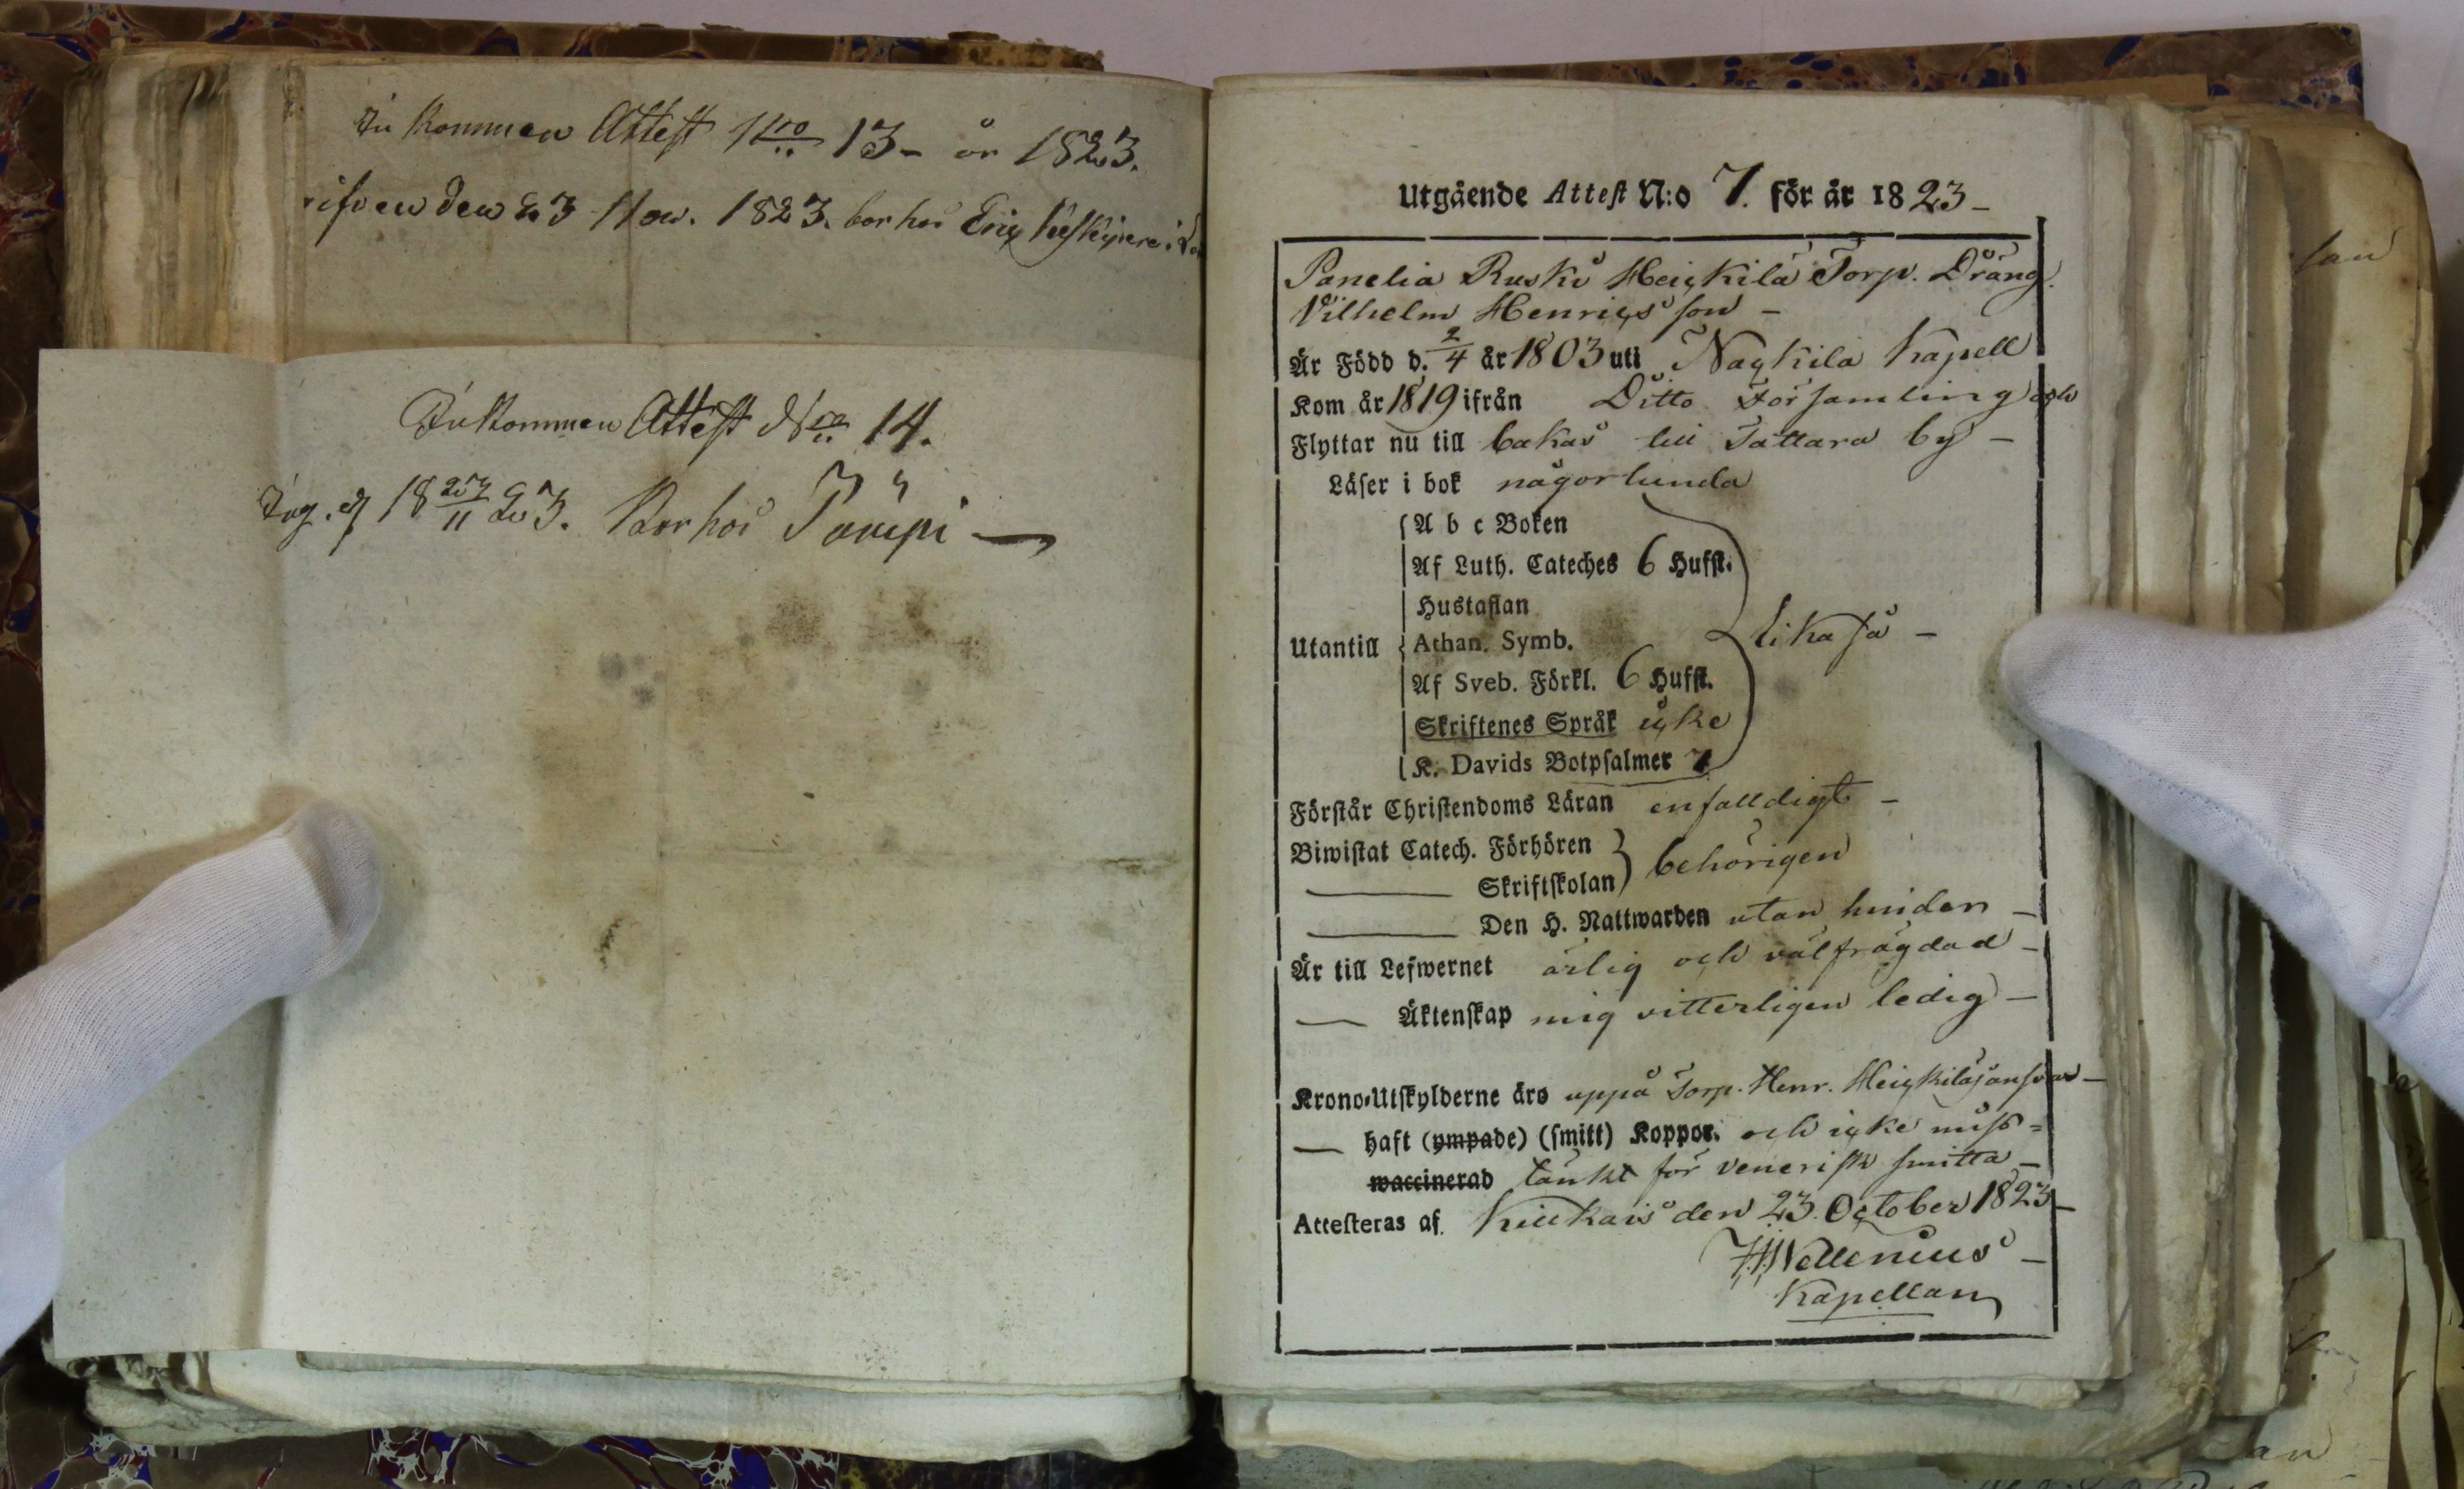 In kommen Attest Nro 13 - år 1823.
den 23 Nov. 1823. bor hos Eric
Inkommen Attest Nro 14.
Ing. d 18 27/11 23. Bor hos
Utgående Attest N:o 7. för år 1823 -
Panelia Rusko Heickilä Torp. Dräng.
Vilhelm Henrics son -
Är Född d. 2/4 år 1803 uti Nackila Kapell
Kom år 1819 ifrån Ditto Församling och
Flyttar nu till bakas till Tattara by -
Läser i bok någorlunda
A b c Boken
Af Luth. Cateches 6 Hufst.
Hustaflan
Utantill Athan. Symb. lika så -
Af Sveb. Förkl. 6 Hufst.
Skriftenes Språk icke
K. Davids Botpsalmer 7
Förstår Christendoms Läran enfalldigt -
Biwistat Catech. Förhören behörigen
Skriftskolan
Den H. Nattwarden utan hinder -
Är till Lefwernet ärlig och välfrägdad -
Äktenskap mig vitterligen ledig -
Krono-Utskylderne äro uppå Torp. Henr. Heickiläs answar -
haft (ympade) (smitt) Koppor. och icke miss=
waccinerad tänkt för venerisk smitta -
Attesteras af Kiukais den 23. October 1823 -
Wellenius -
Kapellan